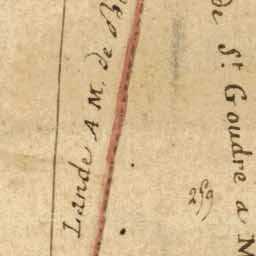 Lande A M. de
de St Goudre a M